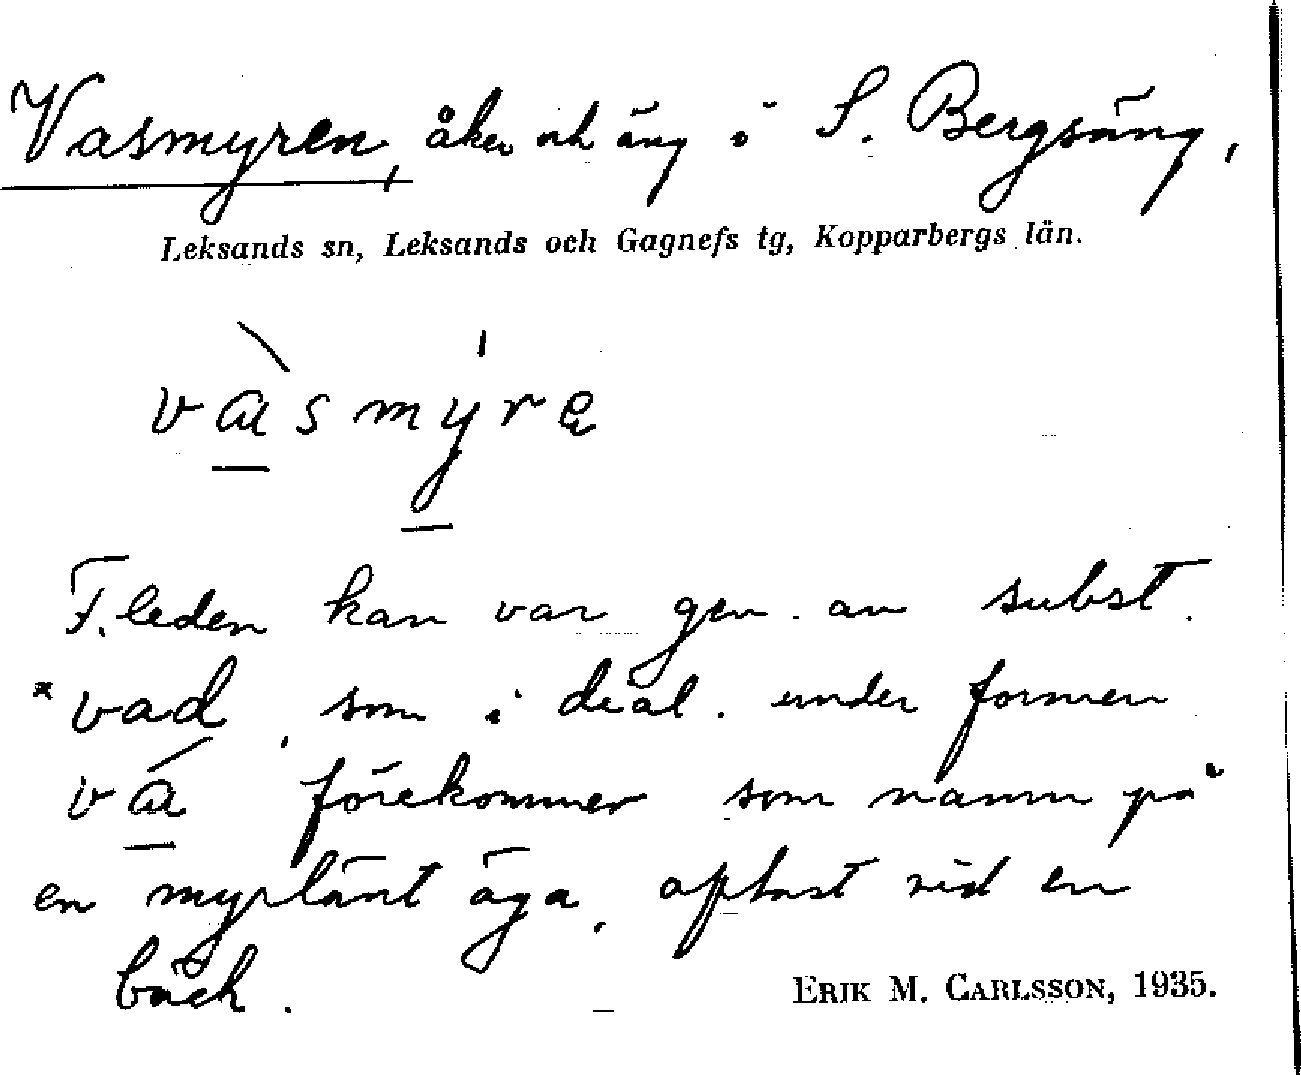 Vasmyren, åker och äng i S. Bergsäng,
Leksands sn, Leksands och Gagnefs tg, Kopparbergs län.
vàsmýrę
F.leden kan var gen. av subst.
*vad, som i dial. under formen
vá förekommer som namn på
en myrlänt äga, oftast vid en
bäck.
ERIK M. CARLSSON, 1935.